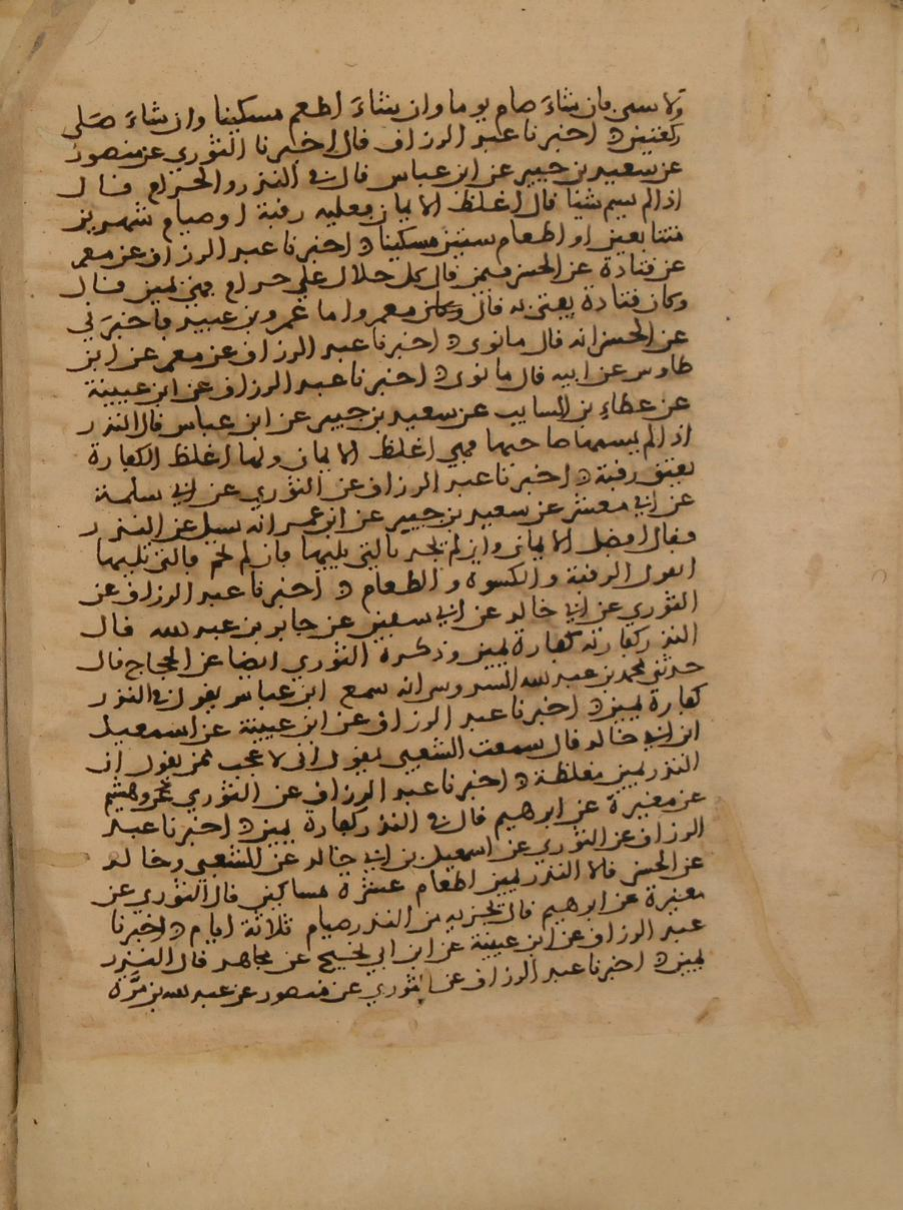 ولا سمى فان شاء صام يوما وان شاء اطعم مسكينا وان شاء صلى
ركعتين ه اخبرنا عبد الرزاق قال اخبرنا الثوري عن منصور
عن سعيد بن جبير عن ابن عباس قال في النذر والحرام قال
اذا لم يسم شيئا قال اغلظ الايمان فعليه رقبة او صيام شهرين
متتابعين او اطعام ستين مسكينا ه اخبرنا عبد الرزاق عن معمر
عن قتادة عن الحسن فيمن قال كل حلال علي حرام فهي يمين قال
وكان قتادة يفتي به قال وكان معمر واما عمرو بن عبيد فاخبرني
عن الحسن انه قال ما نوى ه اخبرنا عبد الرزاق عن معمر عن ابن
طاوس عن ابيه قال ما نوى ه اخبرنا عبد الرزاق عن ابن عيينة
عن عطاء بن السايب عن سعيد بن جبير عن ابن عباس قال النذر
اذا لم يسمها صاحبها فهي اغلظ الايمان ولها اغلظ الكفارة
بعتق رقبة ه اخبرنا عبد الرزاق عن الثوري عن ابي سلمة
عن ابي معشر عن سعيد بن جبير عن ابن عمر انه سيل عن النذر
فقال افضل الايمان وان لم يجد فالتي يليها فان لم فالتي تليها
الرقبة والكسوة والطعام ه اخبرنا عبد الرزاق عن
الثوري عن ابي خالد عن ابي سفين عن جابر بن عبد الله قال
النذر كفارته كفارة يمين وذكره الثوري ايضا عن الحجاج قال
حدثني محمد بن عبد الله انه سمع ابن عباس يقول في النذر
كفارة يمين ه اخبرنا عبد الرزاق عن ابن عيينة عن اسمعيل
ابن ابي خالد قال سمعت الشعبي يقول اني لاعجب ممن يقول ان
النذر يمين مغلظة ه اخبرنا عبد الرزاق عن الثوري وهشيم
عن مغيرة عن ابرهيم قال في النذر كفارة يمين ه اخبرنا عبد
الرزاق عن الثوري عن اسمعيل بن ابي خالد عن الشعبي وخالد
عن الحسن قالا النذر يمين اطعام عشرة مساكين قال الثوري عن
مغيرة عن ابرهيم قال يجزيه من النذر صيام ثلاثة ايام ه اخبرنا
عبد الرزاق عن ابن عيينة عن ابن ابي نجيح عن مجاهد قال النذر
يمين ه اخبرنا عبد الرزاق عن الثوري عن منصور عن عبد الله بن مرة